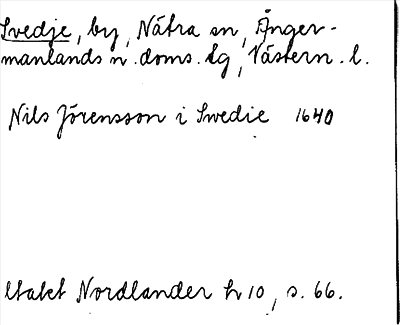 Svedje, by, Nätra sn, Ånger-
manlands n. doms. lg, Västern. l.
Nils Jörensson i Swedie 1640
Utakt Nordlander h 10, s. 66.